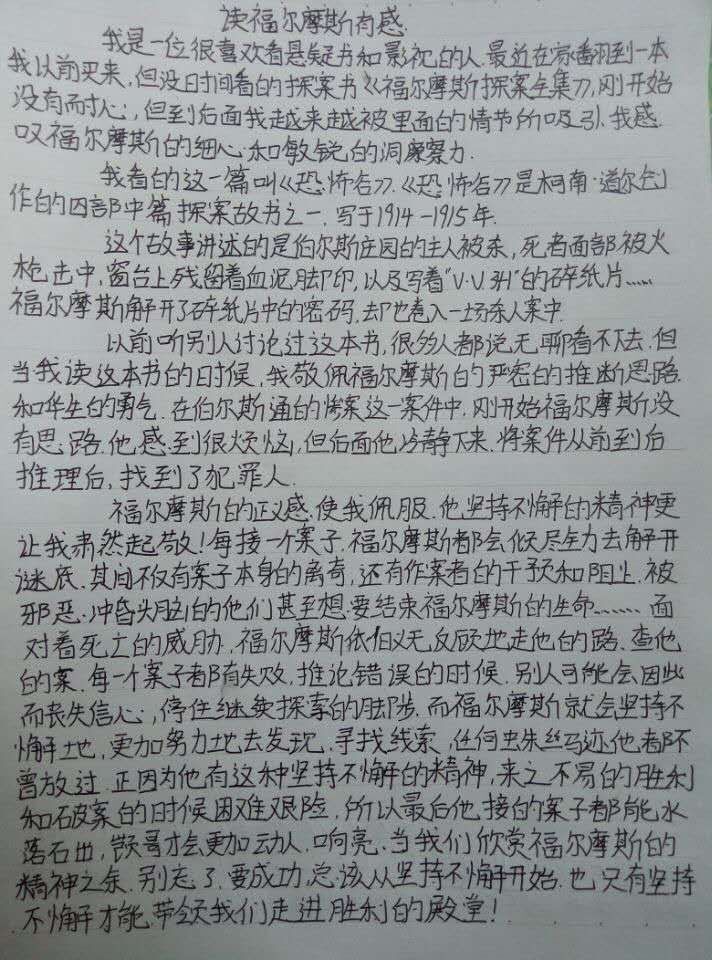 读福尔摩斯有感
我是一位很喜欢看悬疑书和影视的人.最近在家翻到一本
我以前买来,但没时间看的探案书《福尔摩斯探案全集》,刚开始
没有耐心,但到后面我越来越被里面的情节所吸引.我感
叹福尔摩斯的细心和敏锐的洞察力.
我看的这一篇叫《恐怖谷》.《恐怖谷》是柯南·道尔创
作的四部中篇探案故书之一.写于1914-1915年.
这个故事讲述的是伯尔斯庄园的主人被杀,死者面部被火
枪击中,窗台上残留着血泥脚印,以及写着"V.V.341"的碎纸片......
福尔摩斯解开了碎纸片中的密码.却也卷入一场杀人案中.
以前听别人讨论过这本书,很多人都说无聊看不下去.但
当我读这本书的时候,我敬佩福尔摩斯的严密的推断思路.
和华生的勇气.在伯尔斯通的惨案这一案件中.刚开始福尔摩斯没
有思路.他感到很烦恼,但后面他冷静下来.将案件从前到后
推理后,找到了犯罪人.
福尔摩斯的正义感.使我佩服.他坚持不懈的精神更
让我肃然起敬!每接一个案子.福尔摩斯都会倾尽全力去解开
谜底.其间不仅有案子本身的离奇,还有作案者的干预和阻止.被
邪恶.冲昏头脑的他们甚至想要结束福尔摩斯的生命.......面
对着死亡的威胁.福尔摩斯依旧义无反顾地走他的路.查他
的案.每一个案子都有失败,推论错误的时候.别人可能会因此
而丧失信心,停住继续探索的脚步.而福尔摩斯就会坚持不
懈地,更加努力地去发现.寻找线索,任何虫朱丝马迹.他都不
曾放过.正因为他有这种坚持不懈的精神,来之不易的胜利
和破案的时候困难艰险,所以最后他接的案子都能水
落石出,颂哥才会更加云动人.响亮.当我们欣赏福尔摩斯的
精神之余.别忘了.要成功,总该从坚持不懈开始.也只有坚持
不懈才能.带领我们走进胜利的殿堂!